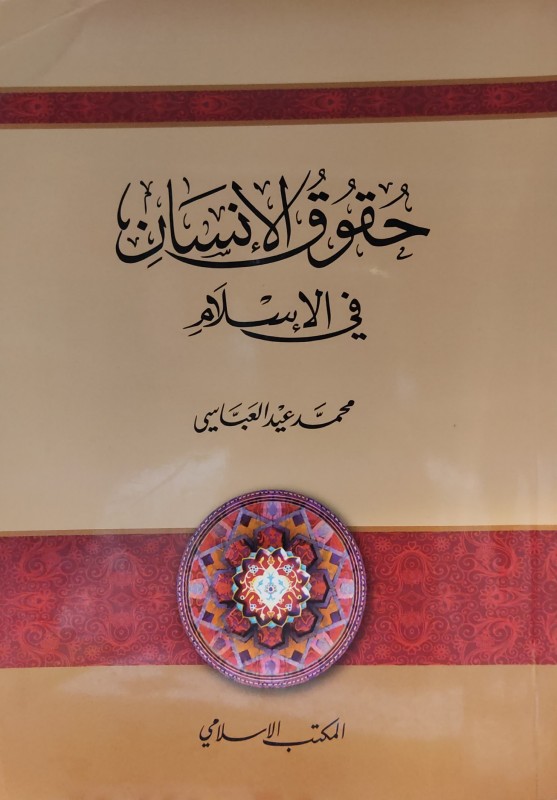 حُقُوقُ الإِنسَانِ
في الإِسْلَامِ
محمَّد عيْد العَبَّاسي
المكتب الاسلامي